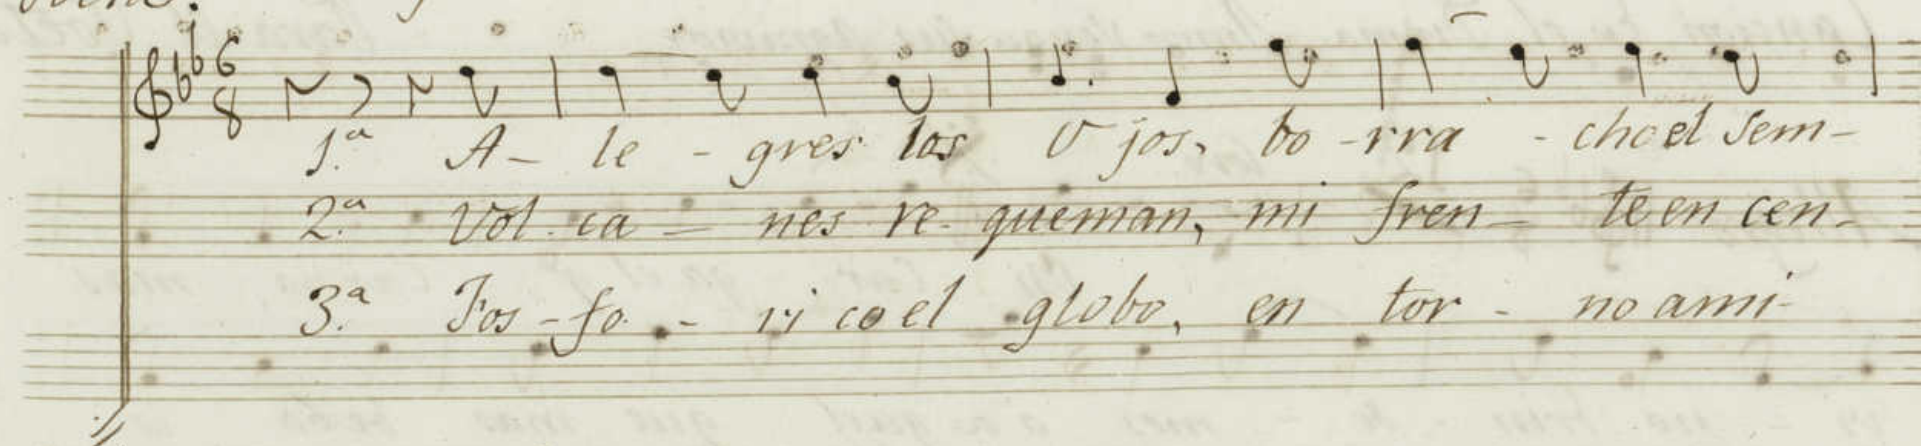 6
8
1.ª A- le - gres los Ojos, bo -rra - cho el sem-
2.ª Vol- ca - nes re- queman, mi fren- te en cen-
3.ª Fos - fo - ri co el globo, en tor - no a mi-